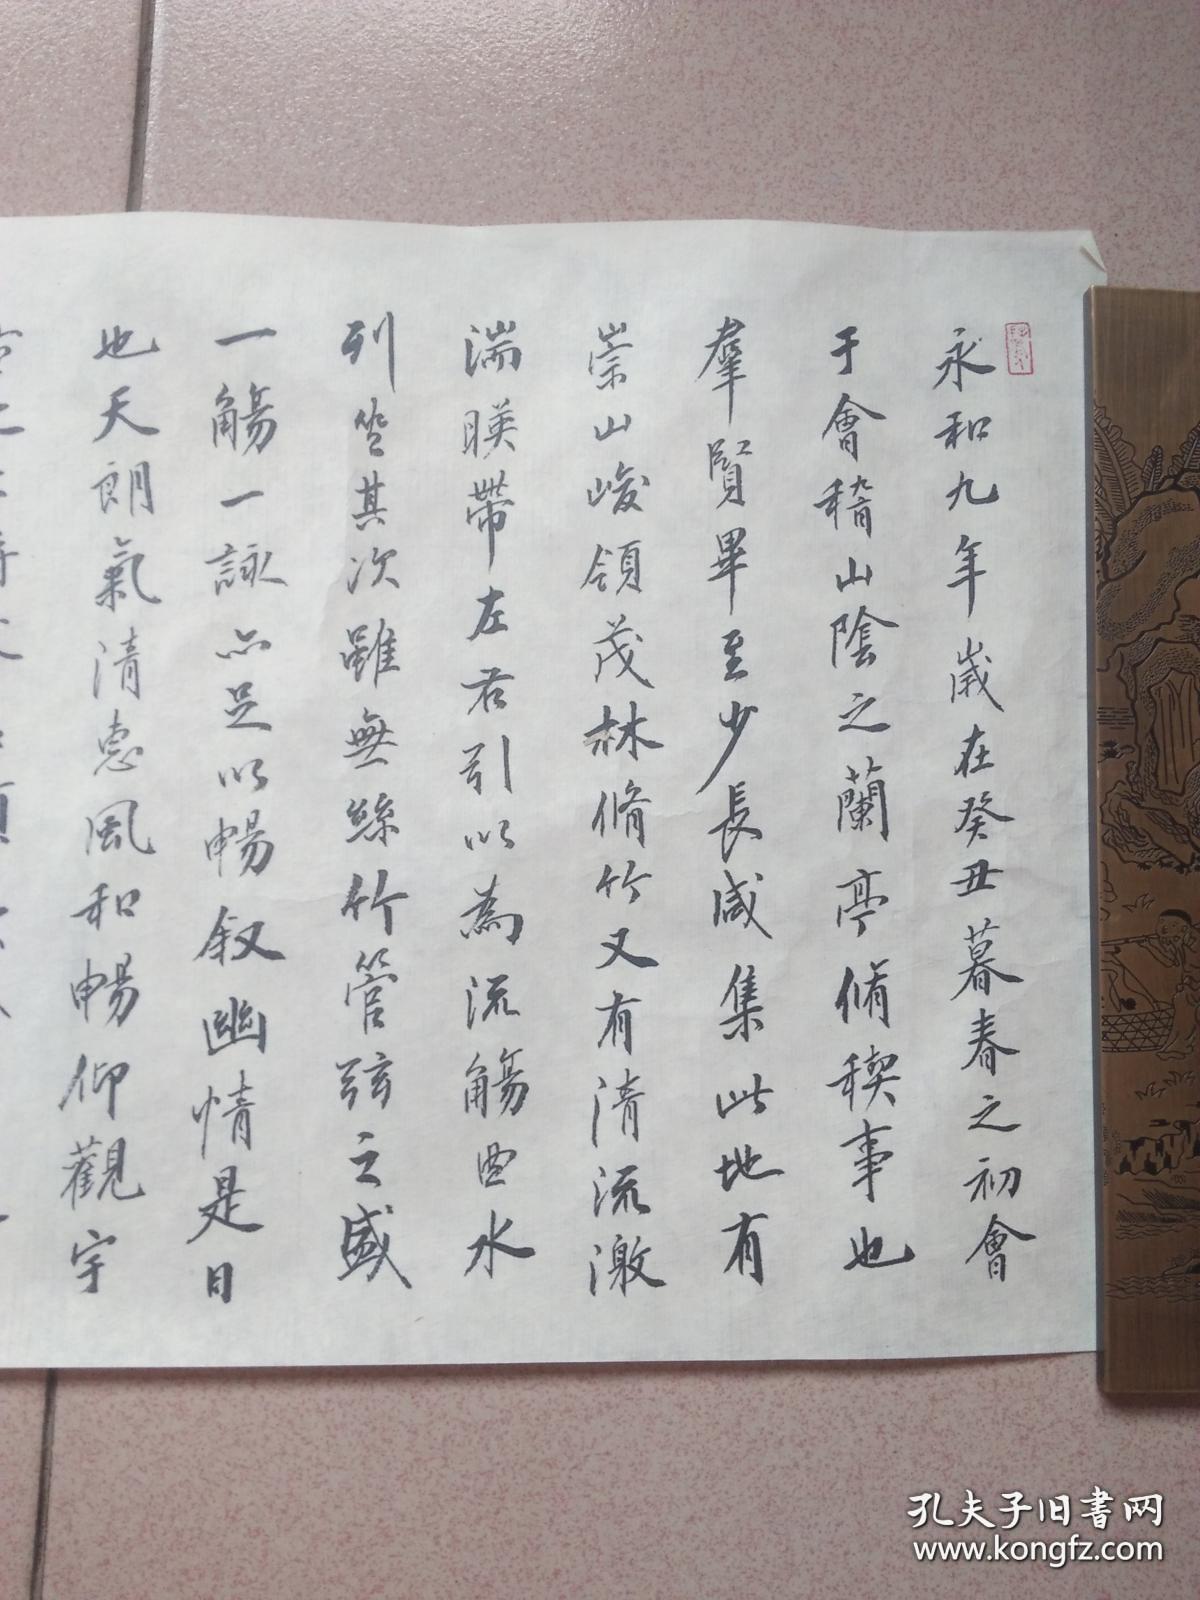 永和九年歲在癸丑暮春之初會
于會稽山陰之蘭亭脩稧事也
羣賢畢至少長咸集此地有
崇山峻領茂林脩竹又有清流激
湍暎帶左右引以為流觴曲水
列坐其次雖無絲竹管弦之盛
一觴一詠亦足以暢叙幽情是日
也天朗氣清惠風和暢仰觀宇
孔夫子旧书网
www.kongfz.com